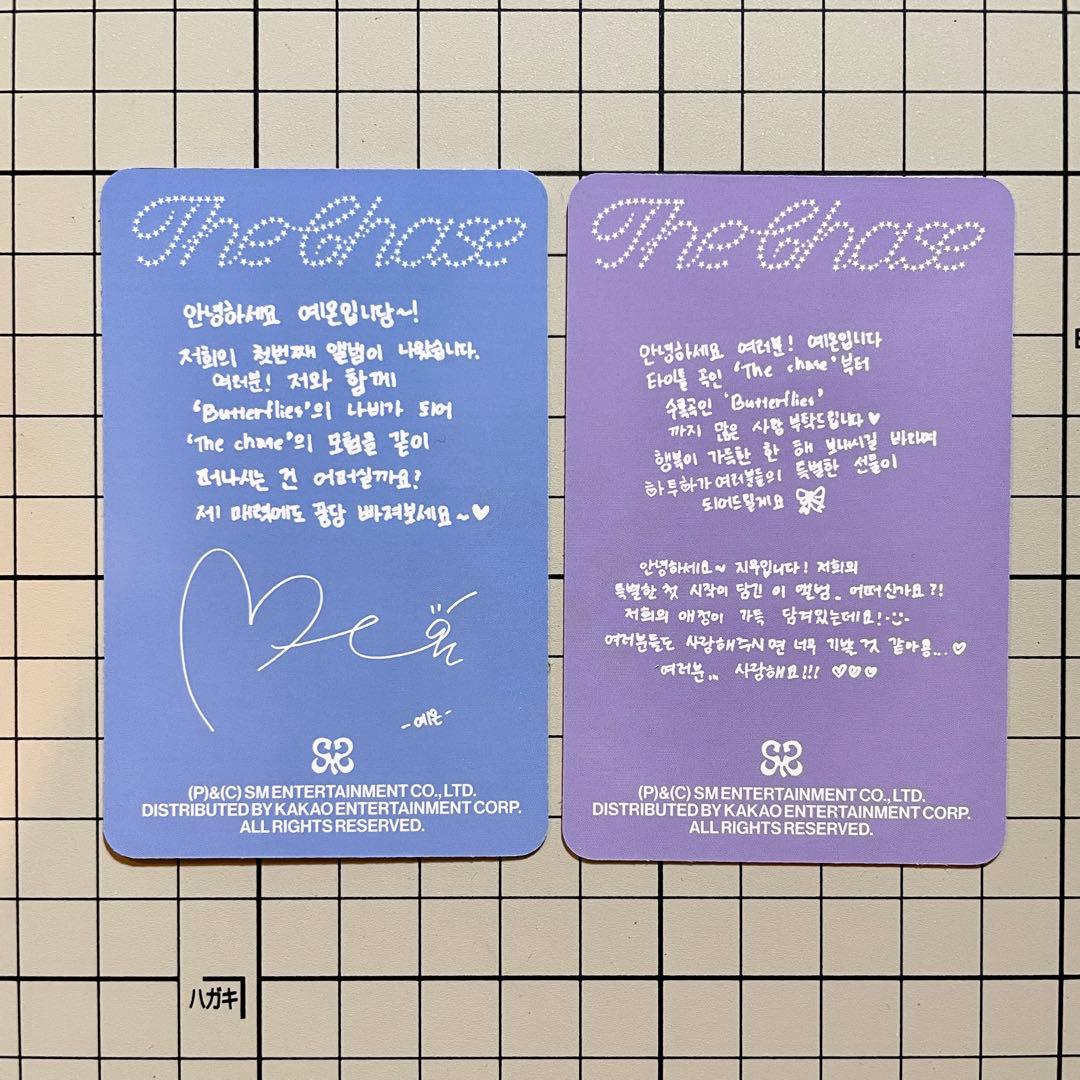 The Chase
안녕하세요 예온입니당~!
저희의 첫번째 앨범이 나왔습니다.
여러분! 저와 함께
'Butterflies'의 나비가 되어
'The chase'의 모험을 같이
떠나시는 건 어떠실까요?
제 매력에도 퐁당 빠져보세요~♥
Ye on
-예온-
(P)&(C) SM ENTERTAINMENT CO., LTD.
DISTRIBUTED BY KAKAO ENTERTAINMENT CORP.
ALL RIGHTS RESERVED.
The Chase
안녕하세요 여러분! 예온입니다
타이틀 곡인 'The chase'부터
수록곡인 'Butterflies'
까지 많은 사랑 부탁드립니다♥
행복이 가득한 한 해 보내시길 바라며
하투하가 여러분들의 특별한 선물이
되어드릴게요
안녕하세요~ 지우입니다! 저희의
특별한 첫 시작이 담긴 이 앨범.. 어떠신가요?!
저희의 애정이 가득 담겨있는데요!
여러분들도 사랑해주시면 너무 기쁠 것 같아용...♡
여러분... 사랑해요!!! ♡♡♡
(P)&(C) SM ENTERTAINMENT CO., LTD.
DISTRIBUTED BY KAKAO ENTERTAINMENT CORP.
ALL RIGHTS RESERVED.
ハガキ